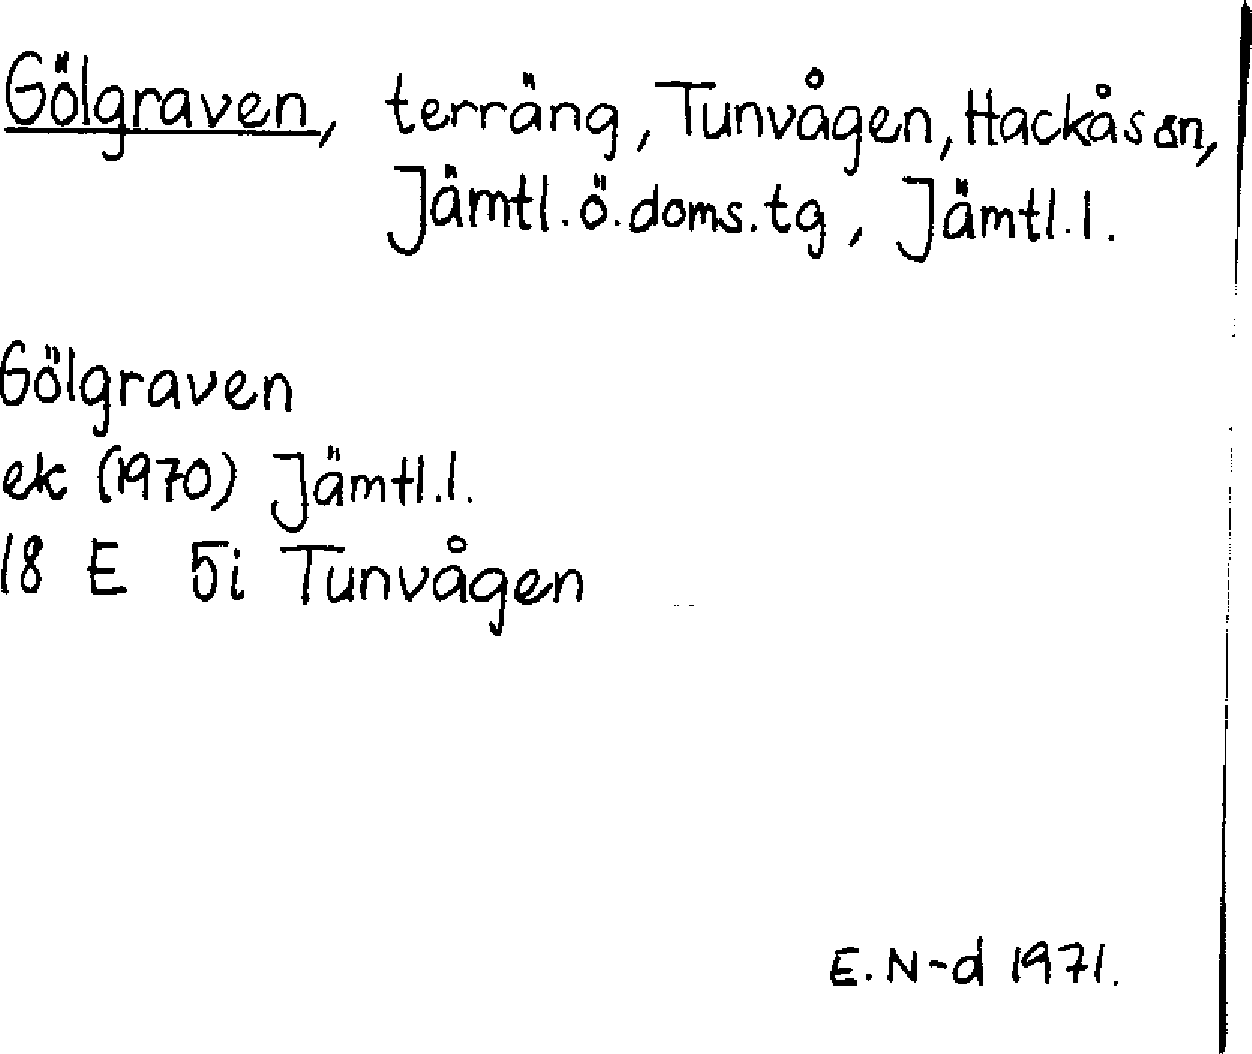 Gölgraven, terräng, Tunvågen, Hackås sn,
Jämtl.ö.doms.tg, Jämtl.l.
Gölgraven
ek (1970) Jämtl.l.
18 E 5i Tunvågen
E.N-d 1971.